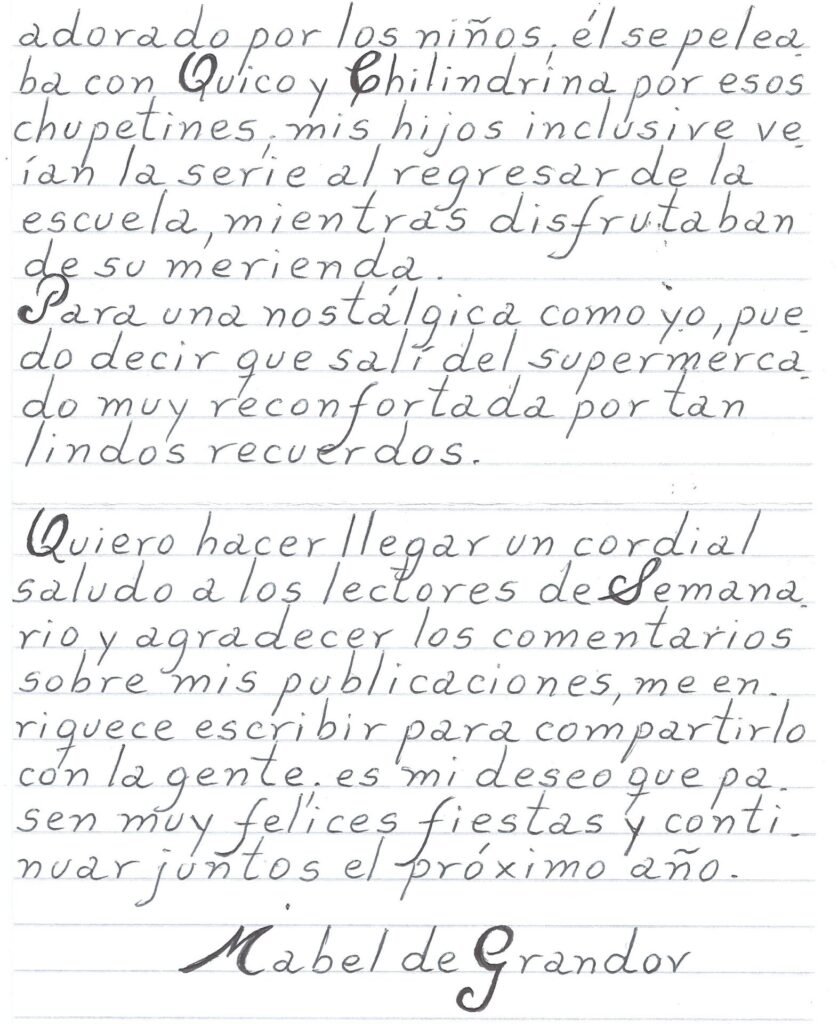 adorado por los niños; él se pelea-
ba con Quico y Chilindrina por esos
chupetines; mis hijos inclusive ve-
ían la serie al regresar de la
escuela, mientras disfrutaban
de su merienda.
Para una nostálgica como yo, pue-
do decir que salí del supermerca-
do muy reconfortada por tan
lindos recuerdos.
Quiero hacer llegar un cordial
saludo a los lectores de Semana-
rio y agradecer los comentarios
sobre mis publicaciones, me en-
riquece escribir para compartirlo
con la gente; es mi deseo que pa-
sen muy felices fiestas y conti-
nuar juntos el próximo año.
Mabel de Grandov